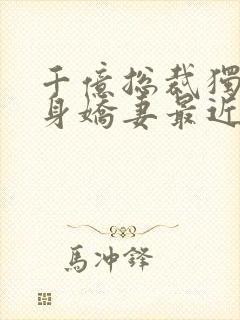 千億总裁獨
身嬌妻最近
馬冲鋒